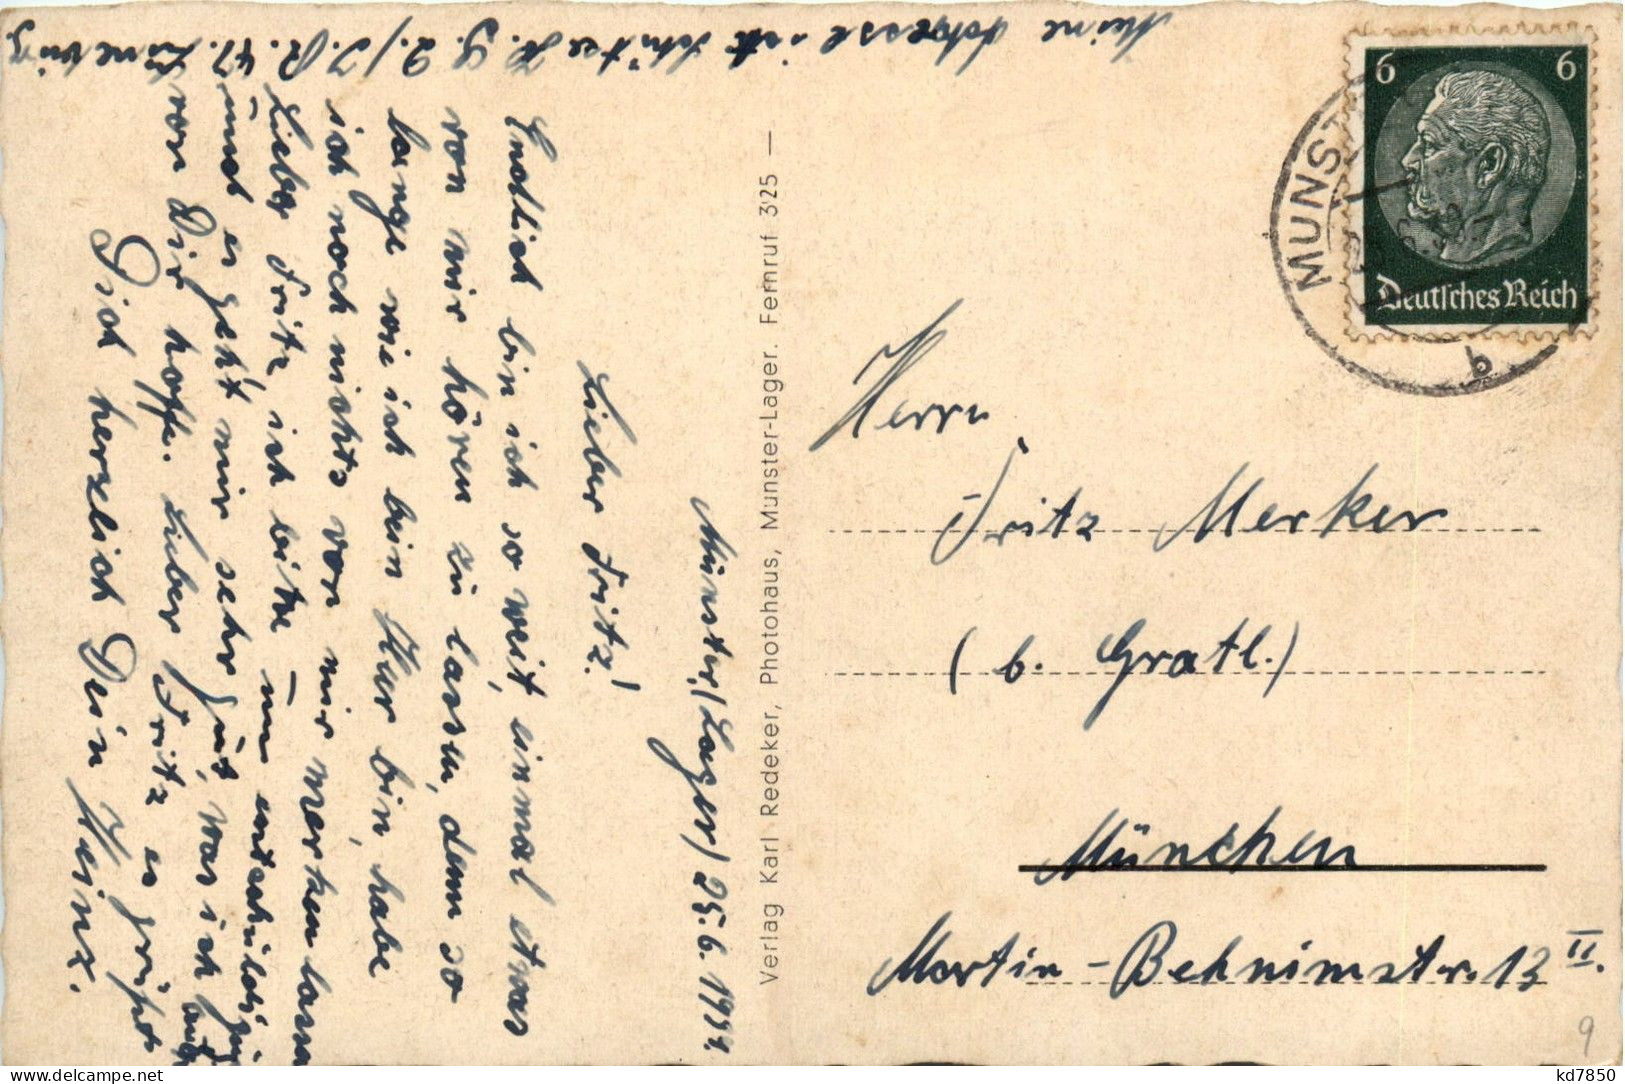 Münster/Lager/ 25.6.1939.
Lieber Fritz!
Endlich bin ich so weit, einmal etwas
von mir hören zu lassen, denn so
lange wie ich beim Kur bin, habe
ich noch nichts von mir merken lassen
Lieber Fritz ich bitte um entschuldig
und es geht mir sehr gut, was ich auch
von Dir hoffe. Lieber Fritz es grüßt
Dich herzlich Dein Heinz.
Meine Adresse ist Schütze H. G. 2./J.R. 47. Lüneburg.
Verlag Karl Redeker, Photohaus, Munster-Lager. Fernruf 325 —
MUNST
b
6 6
Deutsches Reich
Herrn
Fritz Merker
(b. Gratl.)
München
Martin-Behnimstr. 13 II.
9
kd7850